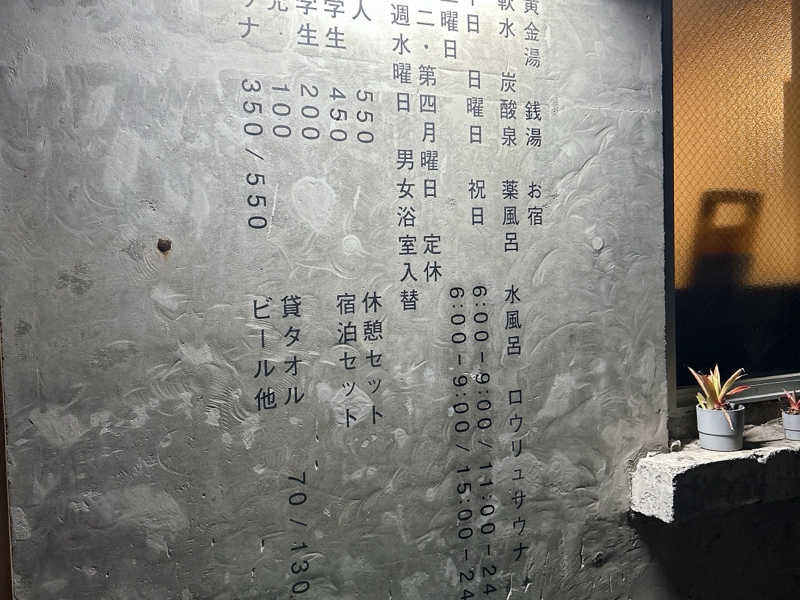 黄金湯　銭湯　お宿
軟水　炭酸泉　薬風呂　水風呂　ロウリュサウナ
日　日曜日　祝日　6:00-9:00/11:00-24
曜日　6:00-9:00/15:00-24
二・第四月曜日　定休
週水曜日　男女浴室入替
人　550　休憩セット
学生　450　宿泊セット
学生　200
100　貸タオル　70/130
サナ　350/550　ビール他